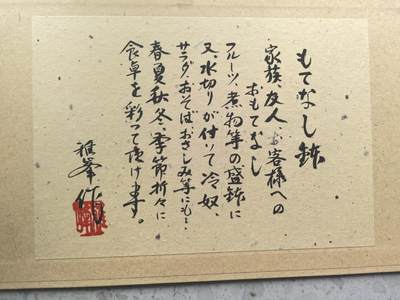 もてなし鉢
家族、友人、お客様への
おもてなし
フルーツ、煮物等の盛鉢に
又、水切りが付いて冷奴、
サラダ、おそばおさしみ等にも…
春夏秋冬、季節折々に
食卓を彩って頂けます。
雅峯作